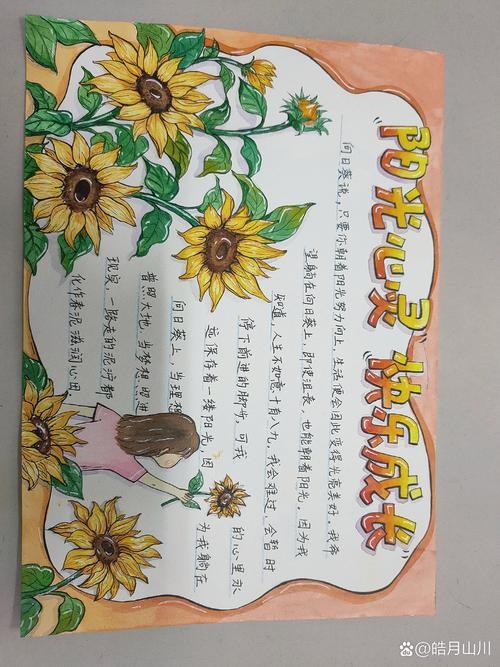 "阳光心灵 快乐成长"
向日葵说，只要你朝着阳光努力向上，生活便会因此变得光亮美好。我希
望躺在向日葵上，即使沮丧，也能朝着阳光，因为我
知道，人生不如意十有八九，我会难过，会暂时
停下前进的脚步，可我 的心里永
远保存着一缕阳光，因 为我躺在
向日葵上，当理想
普照大地，当梦想照进
现实，一路走的泥泞都
化作春泥滋润心田。
@皓月山川